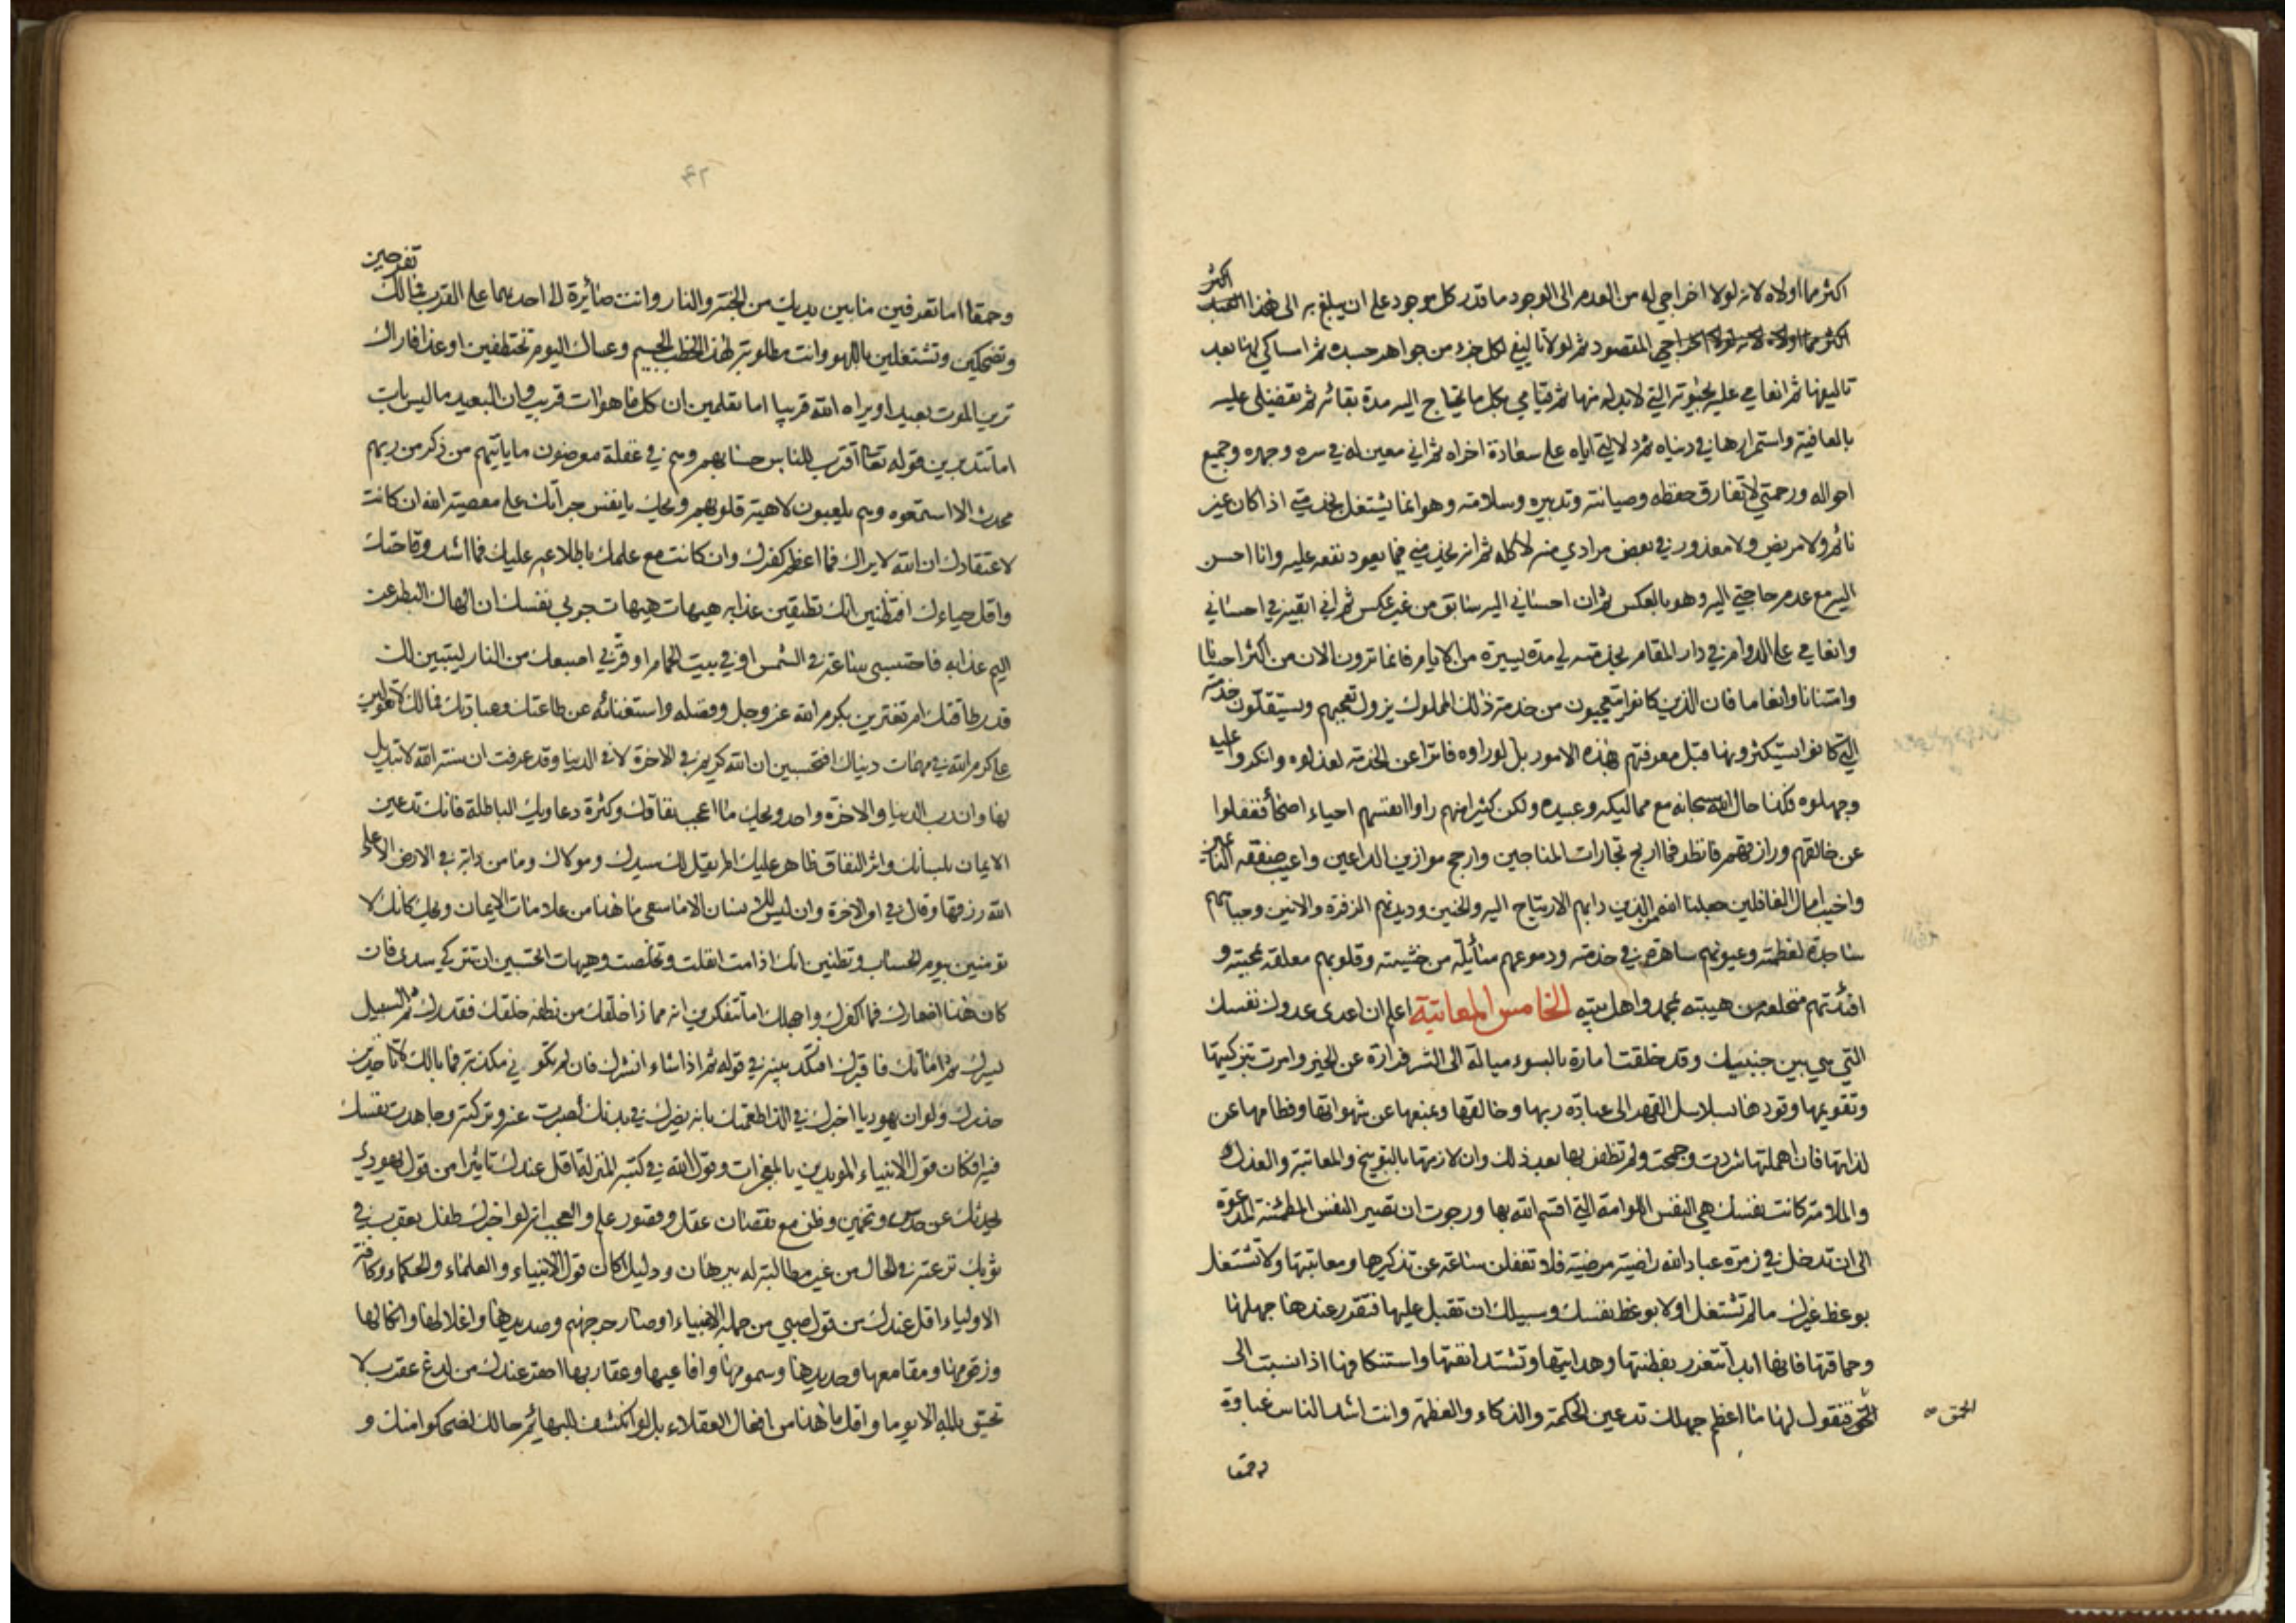 اكثر
اكثر مما اولاه لانه لولا اخراجي له من العدم الى الوجود ما قدر كل موجود على ان يبلغ به الى هذا
المقصود ثم لولا تاليفي لكل جزء من جواهر جسده ثم امساكي لها بعد
تاليفها ثم انعامي عليه بحيوته التي لا بد له منها ثم قيامي بكل ما يحتاج اليه مدة بقائه ثم تفضيلي عليه
بالعافية واستمرارها في دنياه ثم دلالتي اياه على سعادة اخراه ثم اني معين له في سره وجهره وجميع
احواله ورحمتي لا تفارق حفظه وصيانته وتدبيره وسلامته وهو انما يشتغل بخدمتي اذا كان غير
نائم ولا مريض ولا معذور في بعض مرادي منه لا كله ثم انه يخدمني فيما يعود نفعه عليه وانا احسن
اليه مع عدم حاجتي اليه وهو بالعكس ثم ان احساني اليه سابق من غير عكس ثم اني ابقيه في احساني
وانعامي على الدوام في دار المقام بخدمته لي مدة يسيرة من الايام فانما ترون الان من اكثر احسانا
وامتنانا وانعاما فان الذين كانوا يتعجبون من خدمة ذلك المملوك يزول تعجبهم ويستقلون خدمته
التي كانوا يستكثرونها قبل معرفتهم بهذه الامور بل لو راوه فاترا عن الخدمة لعذلوه وانكروا عليه
وجهلوه فكذا حال الله سبحانه مع مماليكه وعبيده ولكن كثير منهم راوا انفسهم احياء اصحاء فغفلوا
عن خالقهم ورازقهم فانظر فما اربح تجارات المناجين وارجح موازين الداعين واعيب صفقة
واخيب امال الغافلين جعلنا الله من الذين دابهم الارتياح اليه والحنين وديدنهم الزفرة والانين وجباههم
ساجدة لعظمته وعيونهم ساهرة في خدمته ودموعهم سائلة من خشيته وقلوبهم معلقة بمحبته و
افئدتهم منخلعة من هيبته بمحمد واهل بيته الخامس المعاتبة اعلم ان اعدى عدوك نفسك
التي هي بين جنبيك وقد خلقت امارة بالسوء ميالة الى الشر فرارة عن الخير وامرت بتزكيتها
وتقويمها وقودها بسلاسل القهر الى عبادة ربها وخالقها ومنعها عن شهواتها وفطامها عن
لذاتها فان اهملتها شردت وجمحت ولم تظفر بها بعد ذلك وان لازمتها بالتوبيخ والمعاتبة والعذل
والملامة كانت نفسك هي النفس اللوامة التي اقسم الله بها ورجوت ان تصير النفس المطمئنة المدعوة
الى ان تدخل في زمرة عباد الله راضية مرضية فلا تغفلن ساعة عن تذكيرها ومعاتبتها ولا تشتغل
بوعظ غيرك ما لم تشتغل اولا بوعظ نفسك وسبيلك ان تقبل عليها فتقرر عندها جهلها
وحماقتها فانها ابدا تتعزز بفطنتها وهدايتها وتشتد انفتها واستنكافها اذا نسبت الى
فنقول لها ما اعظم جهلك تدعين الحكمة والذكاء والفطنة وانت اشد الناس غباوة
الحمق
وحمقا
تفرحين
وحمقا اما تعرفين ما بين يديك من الجنة والنار وانت صائرة الى احديهما على القرب فما لك
وتضحكين وتشتغلين باللهو وانت مطلوبة لهذا الخطب الجسيم وعساك اليوم تختطفين او غدا فاراك
ترين الموت بعيدا ويراه الله قريبا اما تعلمين ان كل ما هو ات قريب وان البعيد ما ليس بات
اما تتدبرين قوله تعالى اقترب للناس حسابهم وهم في غفلة معرضون ما ياتيهم من ذكر من ربهم
محدث الا استمعوه وهم يلعبون لاهية قلوبهم ويحك يا نفس جراتك على معصية الله ان كانت
لاعتقادك ان الله لا يراك فما اعظم كفرك وان كانت مع علمك باطلاعه عليك فما اشد وقاحتك
واقل حياءك افتظنين انك تطيقين عذابه هيهات هيهات جربي نفسك ان الهاك البطر عن
اليم عذابه فاحتبسي ساعة في الشمس او في بيت الحمام او قربي اصبعك من النار ليتبين لك
قدر طاقتك ام تغترين بكرم الله عز وجل وفضله واستغنائه عن طاعتك وعبادتك فما لك لا تعولين
على كرم الله في مهمات دنياك افتحسبين ان الله كريم في الاخرة لا في الدنيا وقد عرفت ان سنة الله لا تبديل
لها وان رب الدنيا والاخرة واحد ويحك ما اعجب نفاقك وكثرة دعاويك الباطلة فانك تدعين
الايمان بلسانك واثر النفاق ظاهر عليك الم يقل لك سيدك ومولاك وما من دابة في الارض الا على
الله رزقها وقال في امر الاخرة وان ليس للانسان الا ما سعى ما هذا من علامات الايمان ويحك كانك لا
تؤمنين بيوم الحساب وتظنين انك اذا مت انفلت وتخلصت وهيهات اتحسبين ان تتركي سدى فان
كان هذا اضمارك فما اكفرك واجهلك اما تتفكرين انه مما ذا خلقك من نطفة خلقك فقدرك ثم السبيل
يسرك ثم اماتك فاقبرك افتكذبينه في قوله ثم اذا شاء انشرك فان لم تكوني مكذبة فما بالك لا تاخذين
حذرك ولو ان يهوديا اخبرك في الذ اطعمتك بانه يضرك في بدنك لصبرت عنه وتركته وجاهدت نفسك
فيه افكان قول الانبياء المويدين بالمعجزات وقول الله في كتبه المنزلة اقل عندك تاثيرا من قول يهودي
يحدثك عن حدس وتخمين وظن مع نقصان عقل وقصور علم والعجب انه لو اخبرك طفل بعقرب في
ثوبك نزعته في الحال من غير مطالبة له ببرهان ودليل اكان قول الانبياء والعلماء والحكماء وكافة
الاولياء اقل عندك من قول صبي من جملة الاغبياء او صار حر جهنم وصديدها واغلالها وانكالها
وزقومها ومقامعها وحديدها وسمومها وافاعيها وعقاربها احقر عندك من لدغ عقرب لا
تحسين بالمه الا يوما واقل ما هذا من افعال العقلاء بل لو انكشف للبهائم حالك لضحكوا منك و